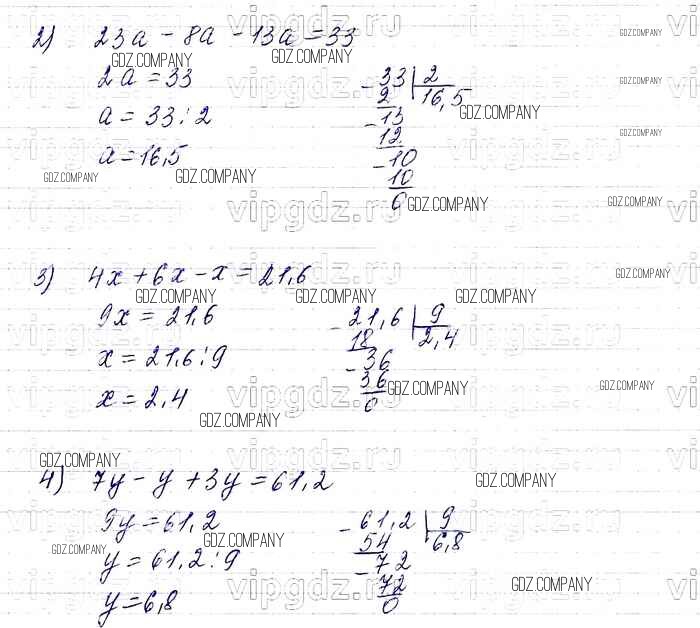 2) 23a - 8a - 13a = 33
2a = 33
a = 33 : 2
a = 16,5
33 | 2
2 | 16,5
13
12
10
10
0
3) 4x + 6x - x = 21,6
9x = 21,6
x = 21,6 : 9
x = 2,4
21,6 | 9
18 | 2,4
36
36
0
4) 7y - y + 3y = 61,2
9y = 61,2
y = 61,2 : 9
y = 6,8
61,2 | 9
54 | 6,8
72
72
0
GDZ.COMPANY
vipgdz.ru